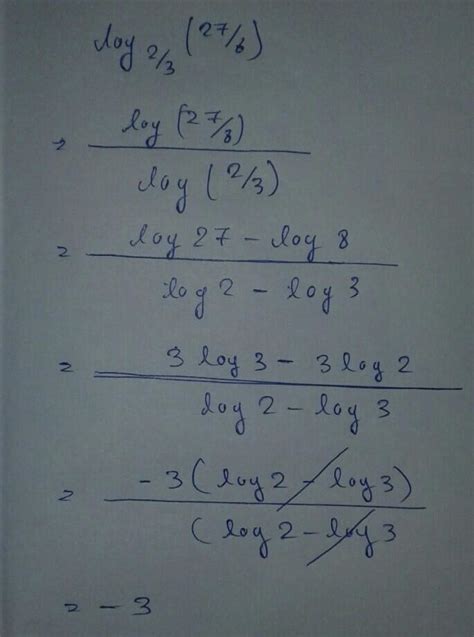 log 2/3 (27/8)
⇒ log (27/8)
log (2/3)
= log 27 - log 8
log 2 - log 3
= 3 log 3 - 3 log 2
log 2 - log 3
= - 3 ( log 2 - log 3)
( log 2 - log 3
= - 3